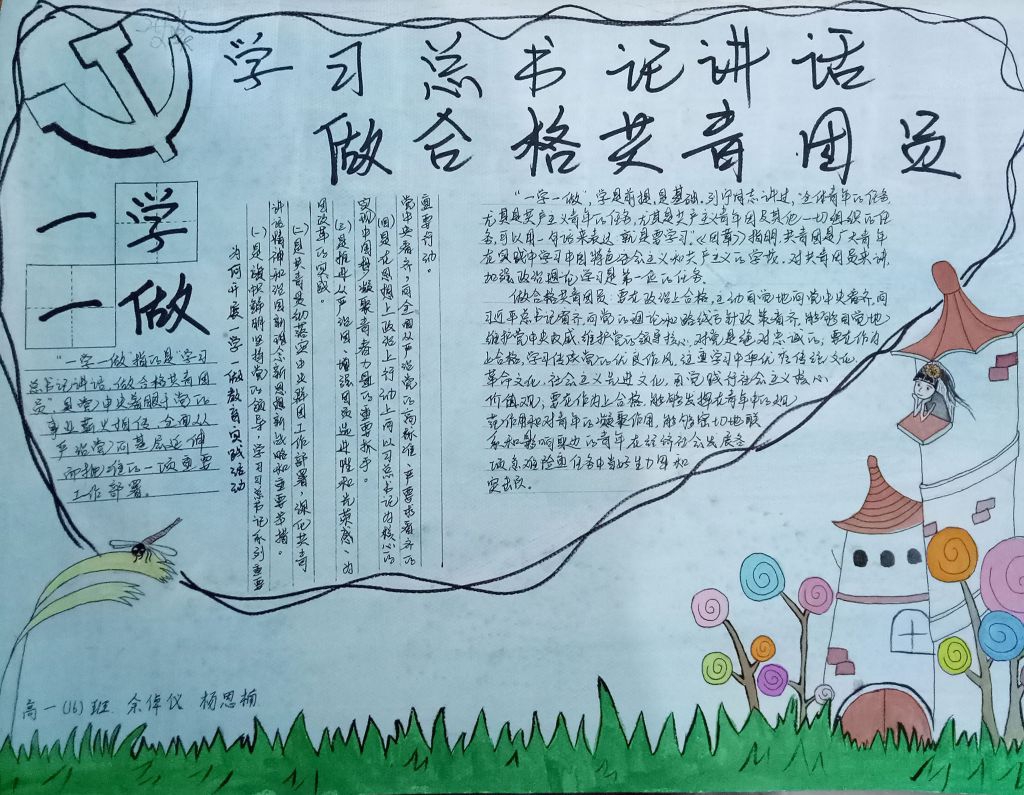 学习总书记讲话
做合格共青团员
一学
一做
"一学一做"指的是"学习
总书记讲话,做合格共青团
员",是党中央着眼于党的
事业薪火相传、全面从
严治党向基层延伸
而抓准的一项重要
工作部署。
为何开展一学一做教育实践活动
(一)是旗帜鲜明坚持党的领导,学习习总书记系列重要
讲话精神和治国新理念新思想新战略和重要举措。
(二)是共青是动落实中央群团工作部署,深化共青
团改革的实践。
(三)是推进从严治团、增强团员先进性和光荣感、为
实现中国梦凝聚青春力量的重要抓手。
(四)是在思想上政治上行动上向以习总书记为核心的
党中央看齐,向全面从严治党的高标准、严要求看齐的
重要行动。
"一学一做",学是前提,是基础,列宁同志讲过,"全体青年的任务,
尤其是共产主义青年的任务,尤其是共产主义青年团及其他一切组织的任
务,可以用一句话来表达,就是要学习"《团章》指明,共青团是广大青年
在实践中学习中国特色社会主义和共产主义的学校。对共青团员来讲,
加强政治理论学习是第一位的任务。
做合格共青团员:要在政治上合格,主动自觉地向党中央看齐,向
习近平总书记看齐,向党的理论和路线方针政策看齐,能够自觉地
维护党中央权威,维护党的领导核心,对党是绝对忠诚的;要在作为
上合格,学习传承党的优良作风,注重学习中华优秀传统文化,
革命文化,社会主义先进文化,自觉践行社会主义核心
价值观;要在作为上合格,能够发挥在青年中的模
范作用和对青年的凝聚作用,能够密切地联
系和影响取边的青年在经济社会发展各
项急难险重任务中当好生力军和
突击队。
高一(16)班 余倬仪 杨思楠